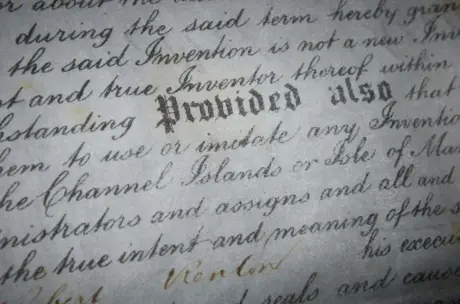 or about the
during the said term hereby gran
the said Invention is not a new Inv
t and true Inventor thereof within
hstanding Provided also that
hem to use or imitate any Inventio
he Channel Islands or Isle of Ma
inistrators and assigns and all and
the true intent and meaning of the s
his execu
seals and cause